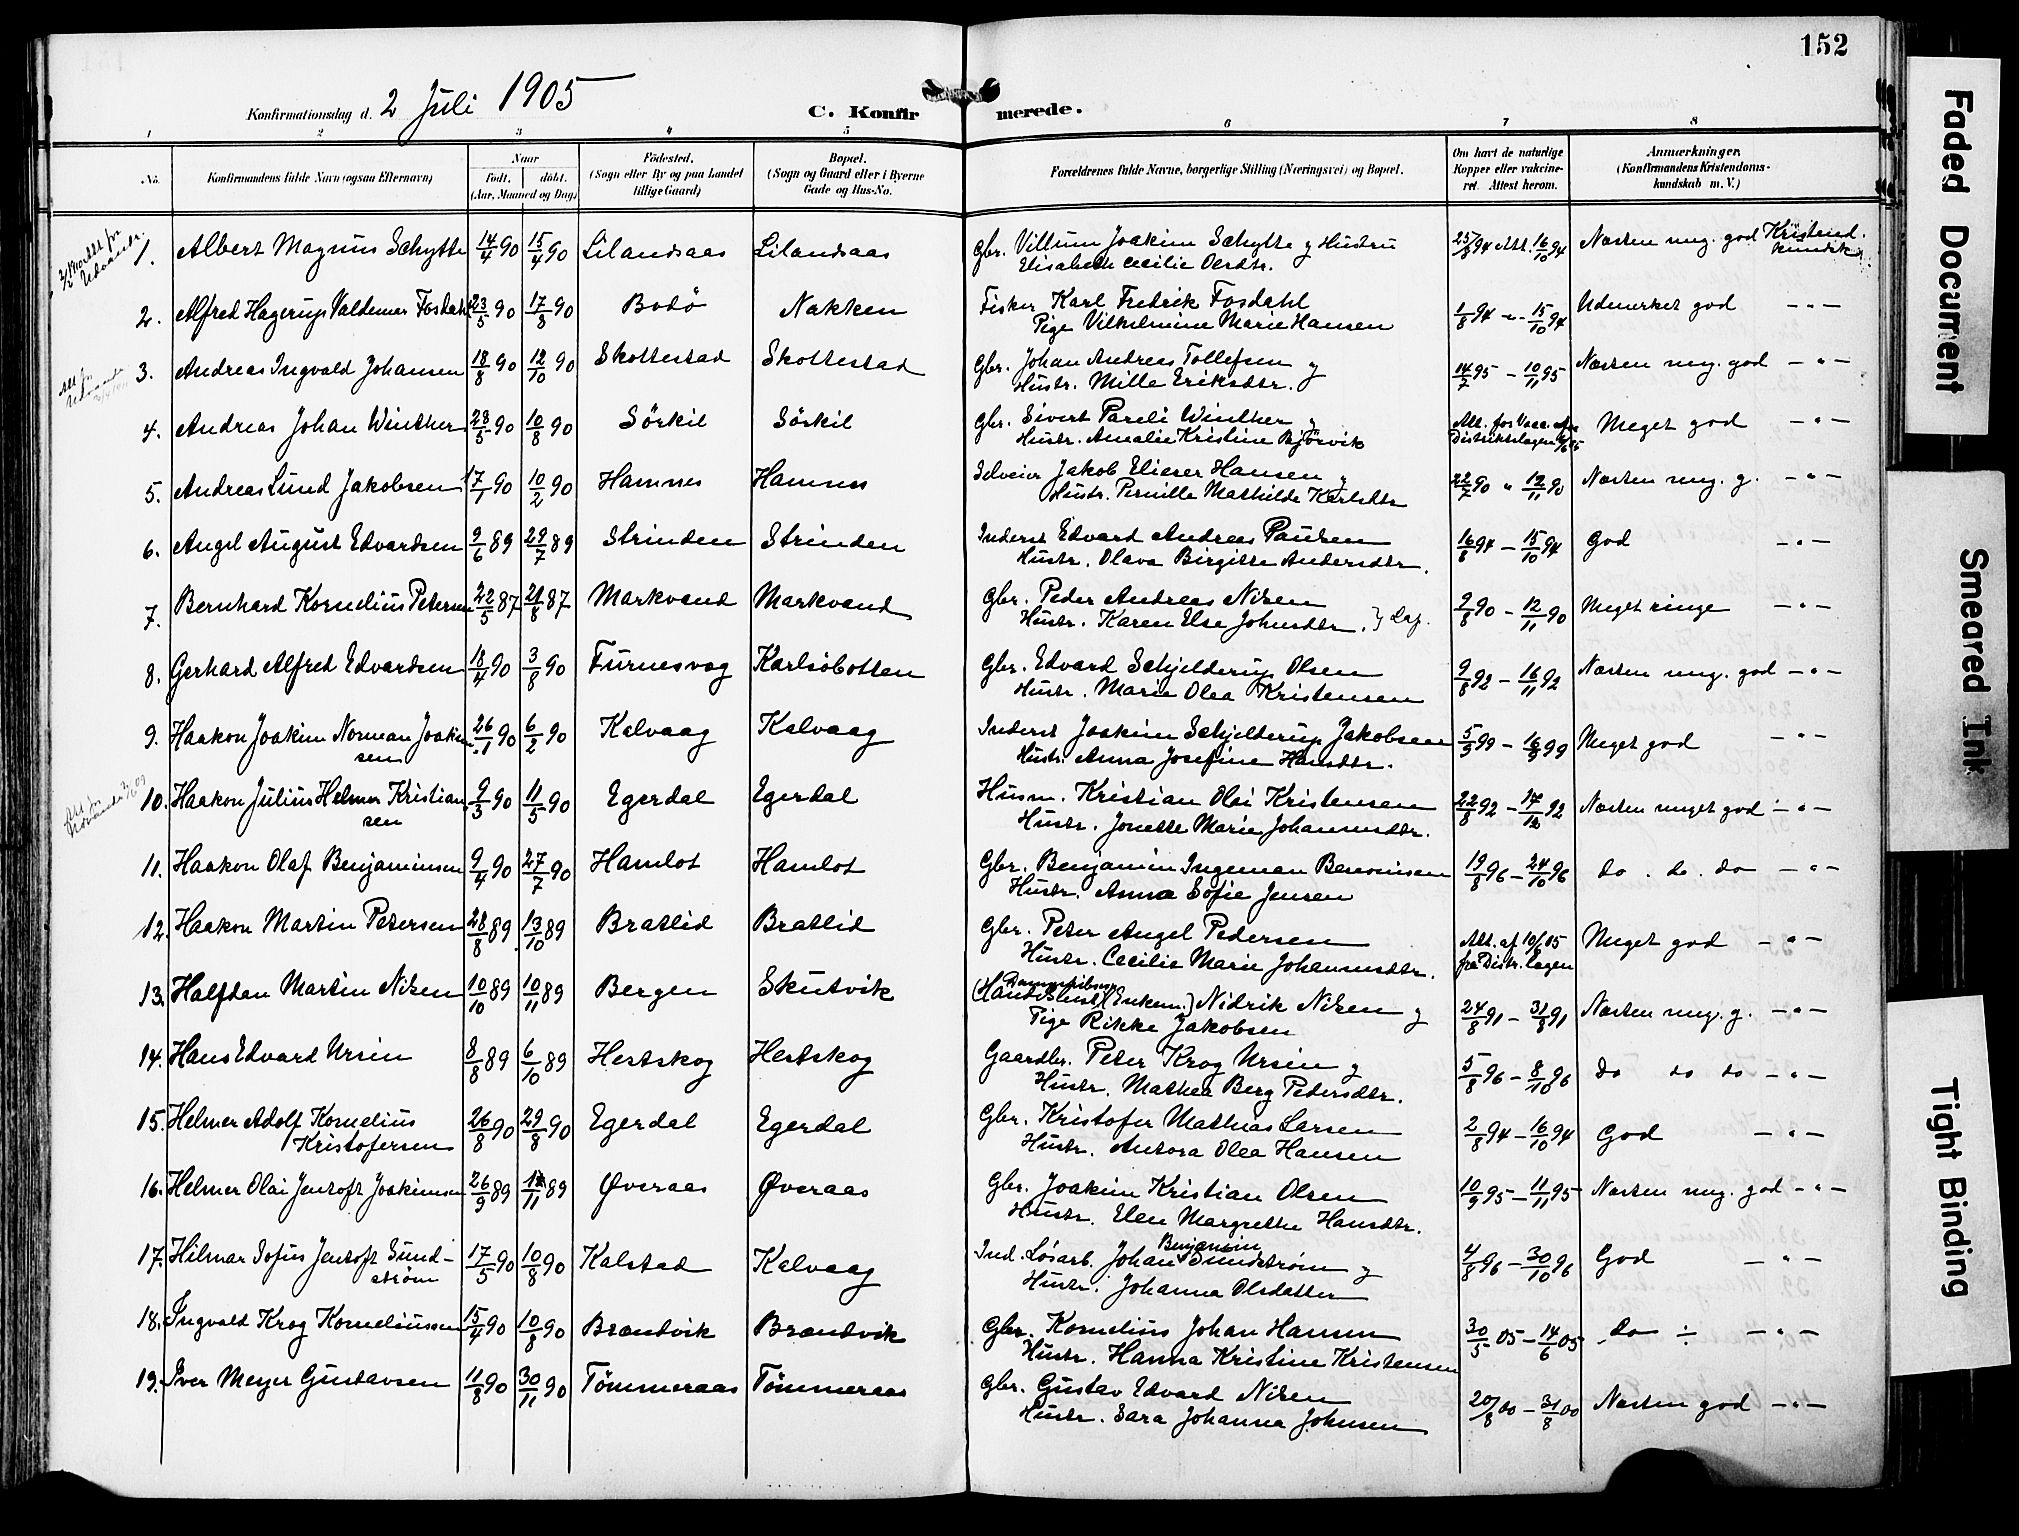 152
Konfirmationsdag d. 2 Juli 1905
C. Konfirmerede.
1 2 3 4 5 6 7 8
No. Konfirmandens fulde Navn (ogsaa Efternavn)
Naar født, døbt. (Aar, Maaned og Dag)
Fødested. (Sogn eller By og paa Landet tillige Gaard)
Bopæl. (Sogn og Gaard eller i Byerne Gade og Hus-No.
Forældrenes fulde Navne, borgerlige Stilling (Næringsvei) og Bopæl.
Om havt de naturlige Kopper eller vakcineret. Attest herom.
Anmærkninger. (Konfirmandens Kristendomskundskab m. V.)
1. Albert Magnus Schytte 14/4 90 15/4 90 Lilandsaas Lilandsaas Gbr. Villum Joakim Schytte og Hustru 25/8 94 Att. 16/10 94 Næsten meg. god Kristend. kundsk.
Elisabeth Cecilie Olsdtr.
2. Alfred Hagerup Valdemar Fosdahl 23/5 90 17/8 90 Bodö Nakken Fisker Karl Fredrik Fosdahl 1/8 94 — 15/10 94 Udmerket god — " —
Pige Vilhelmine Marie Hansen
3. Andreas Ingvald Johansen 18/8 90 12/10 90 Skottestad Skottestad Gbr. Johan Andreas Tollefsen og 14/7 95 — 10/11 95 Næsten meg. god — " —
Hustr. Mille Eriksdtr.
4. Andreas Johan Winther 28/5 90 10/8 90 Sörkil Sörkil Gbr. Sivert Pareli Winther og Att. for Vacc. af Meget god — " —
Hustr. Amalie Kristine Bjørvik Distriktslægen
5. Andreas Lund Jakobsen 17/1 90 10/2 90 Hamnes Hamnes Selveier Jakob Elieser Hansen og 22/7 90 " 12/11 90 Næsten meg. g. — " —
Hustr. Pernille Mathilde Karlsdtr
6. Angel August Edvardsen 9/6 89 29/7 89 Strinden Strinden Inderst Edvard Andreas Paulsen 16/8 94 — 15/10 94 God — " —
Hustr. Olava Birgitte Andersdtr.
7. Bernhard Kornelius Petersen 22/5 87 21/8 87 Markvand Markvand Gbr. Peder Andreas Nilsen 9/8 90 — 12/11 90 Meget ringe — " —
Hustr. Karen Else Johnsdtr. } Lap.
8. Gerhard Alfred Edvardsen 18/4 90 3/8 90 Furnesvag Karlsöbotten Gbr. Edvard Schjelderup Olsen 9/8 92 — 16/11 92 Næsten meg. god — " —
Hustr. Marie Olea Kristensen
9. Haakon Joakim Norman Joakimsen 26/1 90 6/2 90 Kalvaag Kalvaag Inderst Joakim Schjelderup Jakobsen 5/9 99 — 16/9 99 Meget god — " —
Hustr. Anna Josefine Hansdtr.
10. Haakon Julius Helmer Kristiansen 9/3 90 11/5 90 Egerdal Egerdal Husm. Kristian Olai Kristensen 22/8 92 — 17/12 92 Næsten meget god — " —
Hustr. Jonette Marie Johannesdtr.
11. Haakon Olaf Benjaminsen 9/4 90 27/7 90 Hamlot Hamlot Gbr. Benjamin Ingeman Benonisen 19/8 96 — 24/10 96 do. do. do — " —
Hustr. Anna Sofie Jensen
12. Haakon Martin Petersen 28/8 89 13/10 89 Bratlid Bratlid Gbr. Peter Angel Pedersen Att. af 10/6 05 Meget god — " —
Hustr. Cecilie Marie Johannesdtr. fra Distr. lægen
13. Halfdan Martin Nilsen 10/10 89 10/11 89 Bergen Skutvik (Handelsmd (Enkem.) Nidrik Nilsen og 24/8 91 — 31/8 91 Næsten meg. g. — " —
Pige Rikke Jakobsen
14. Hans Edvard Ursin 8/8 89 6/10 89 Hestskog Hestskog Gaardbr. Peter Krog Ursin og 5/8 96 — 8/10 96 do do do — " —
Hustr. Mathea Berg Petersdtr.
15. Helmer Adolf Kornelius 26/8 90 29/8 90 Egerdal Egerdal Gbr. Kristofer Mathias Larsen 2/8 94 — 16/10 94 God — " —
Kristofersen Hustr. Antora Olea Hansen
16. Helmer Olai Jentoft Joakimsen 26/9 89 /11 89 Øveraas Øveraas Gbr. Joakim Kristian Olsen 10/9 95 — 11/11 95 Næsten meg. god — " —
Hustr. Elen Margrethe Hansdtr.
17. Hilmar Sofus Jentoft Sundström 17/5 90 10/8 90 Kalstad Kalvaag Ind. Løsarb. Johan Benjamin Sundström og 4/8 96 — 30/10 96 God — " —
Hustr. Johanna Olsdatter
18. Ingvald Krog Korneliussen 15/4 90 10/8 90 Brændvik Brændvik Gbr. Kornelius Johan Hansen 30/5 05 — 14/6 05 do ÷ — " —
Hustr. Hanna Kristine Kristensen
19. Iver Meyer Gustavsen 11/8 90 30/11 90 Tömmeraas Tömmeraas Gbr. Gustav Edvard Nilsen 20/8 00 — 31/8 00 Næsten god — " —
Hustr. Sara Johanna Johnsen
Faded Document
Smeared Ink
Tight Binding